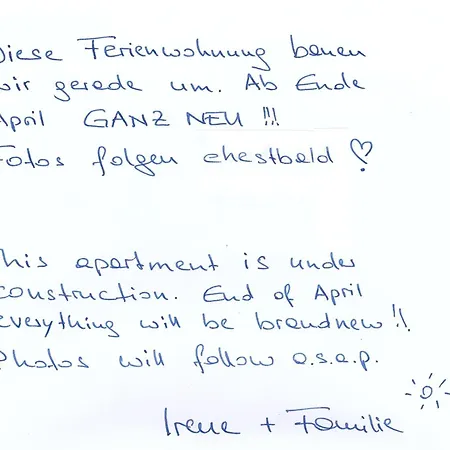 Diese Ferienwohnung bauen
wir gerade um. Ab Ende
April GANZ NEU !!!
Fotos folgen ehestbald ♡!
This apartment is under
construction. End of April
everything will be brandnew!!
Photos will follow a.s.a.p.
Irene + Familie